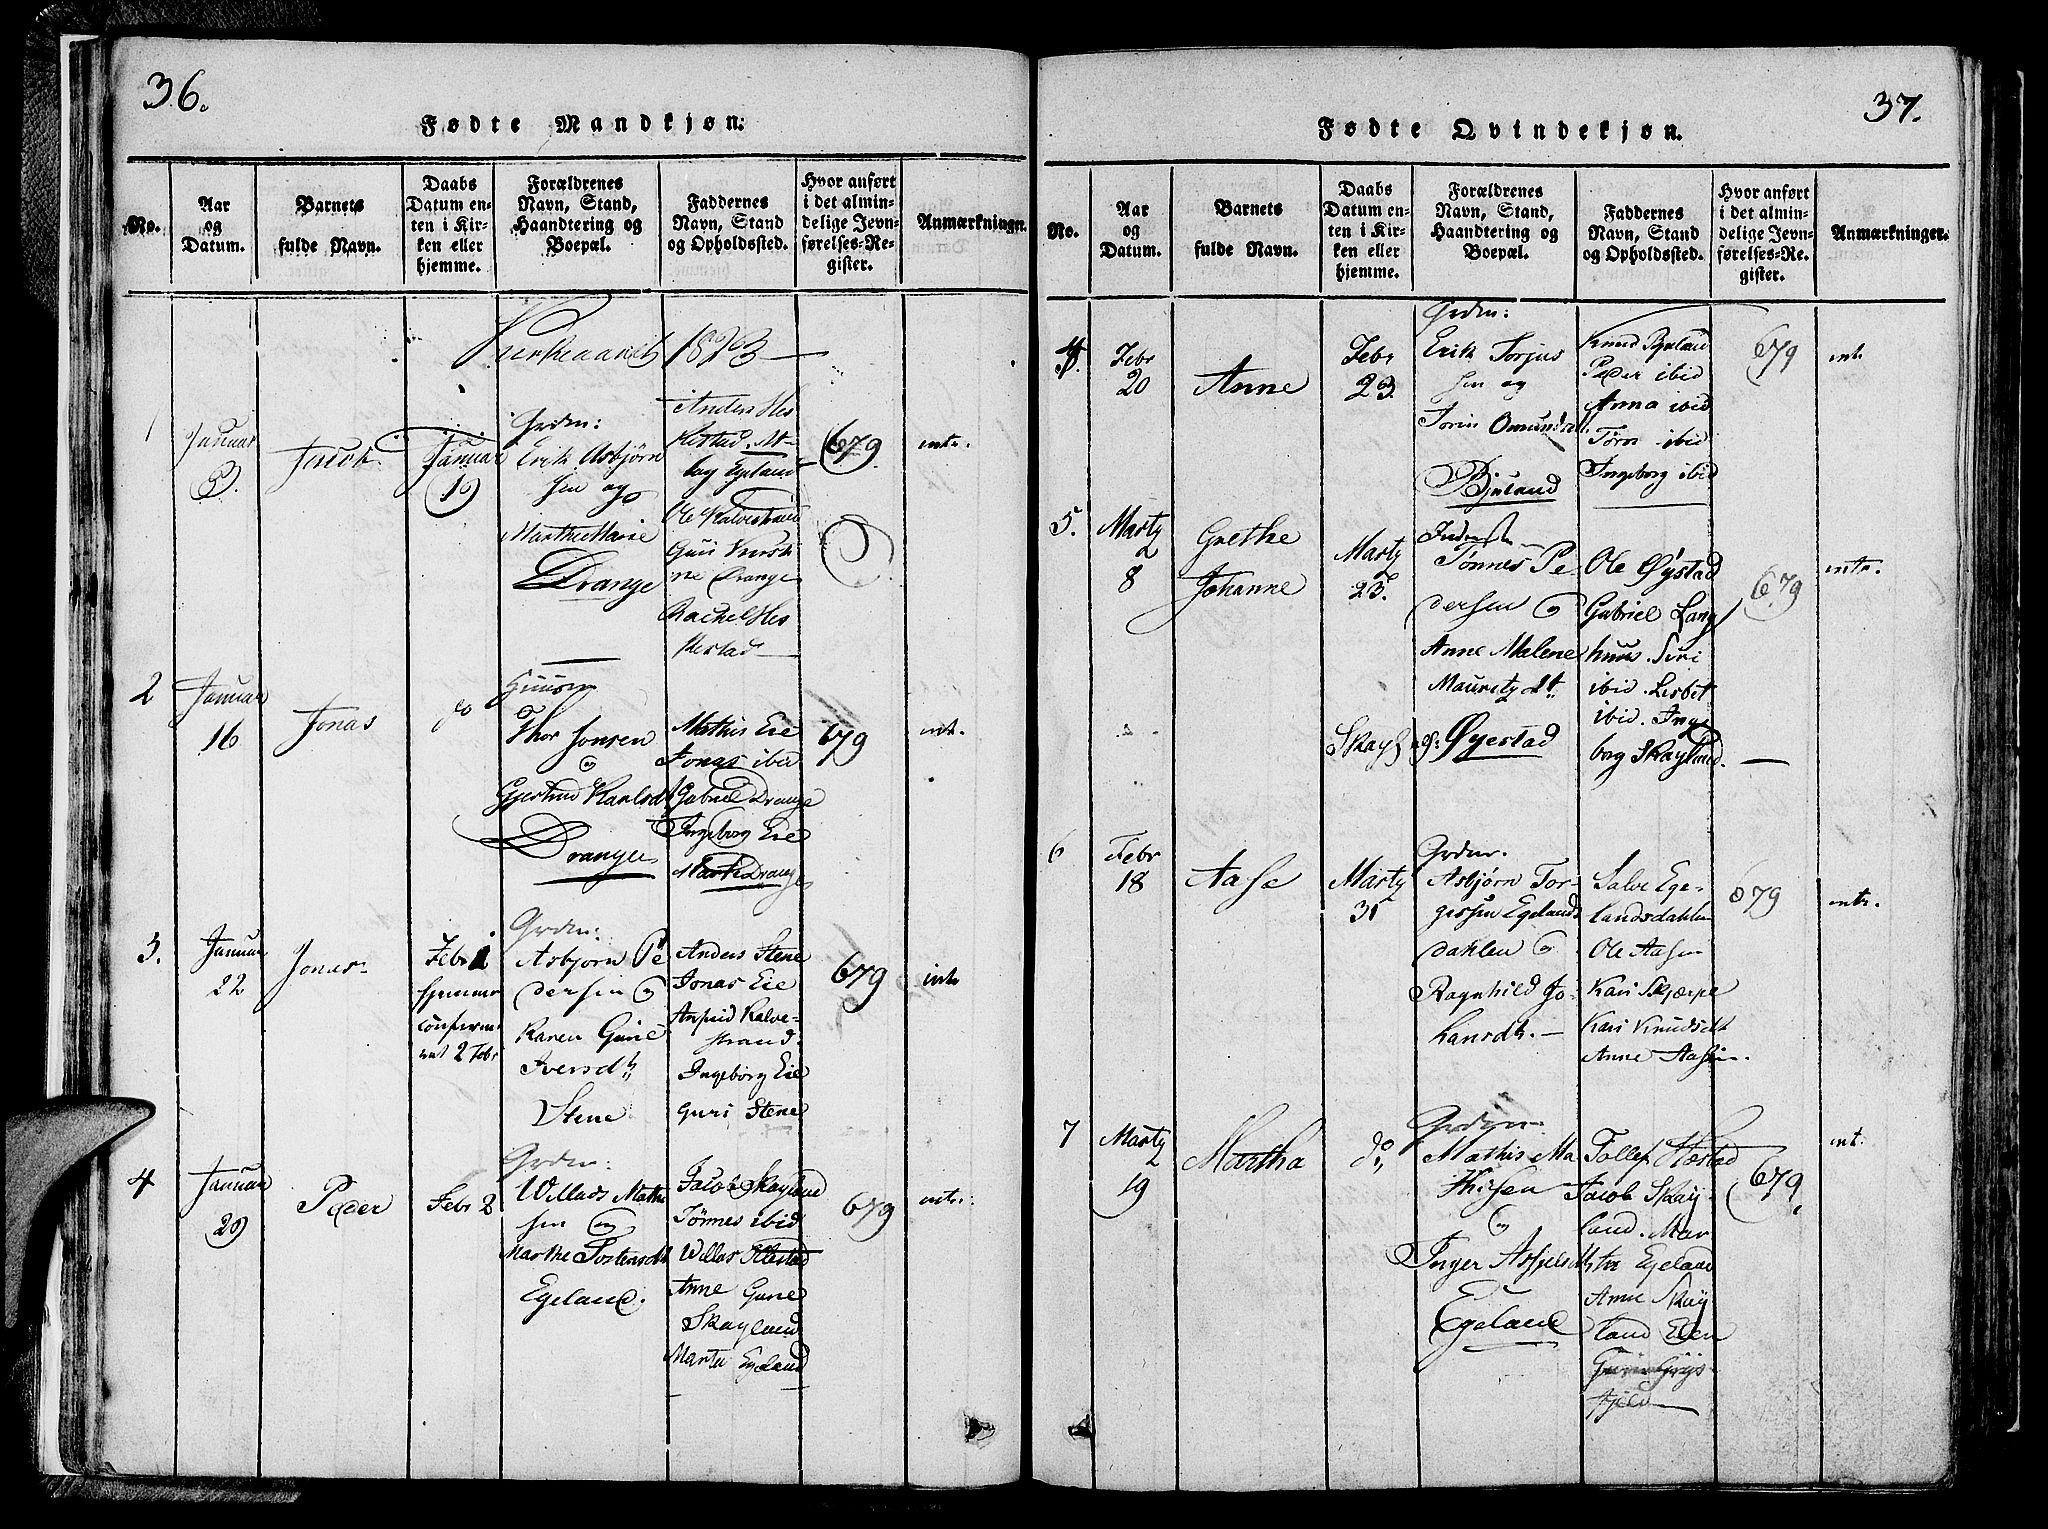 36.
Fødte Mandkjøn.
No.
Aar
og
Datum.
Barnets
fulde Navn.
Daabs
Datum en-
ten i Kir-
ken eller
hjemme.
Forældrenes
Navn, Stand,
Haandtering og
Boepæl.
Faddernes
Navn, Stand
og Opholdssted.
Hvor anført
i det almin-
delige Jevn-
førelses-Re-
gister.
Anmærkninger.
1823
1
Januar
Jacob
Januar
19
Grdm:
Erik Asbjørn
sen og
Marthe Marie
Drange
Anders Hes
kestad
Egeland
Ole Kalvestrand
Guri Kirsti
ne Drange
Rachel Hes
kestad
679
intr.
2
Januar
16
Jonas
do
Huusm
Thor Jonsen
og
Gjertrud Karlsdt
Drange
Mathis Eie
Jonas ibid
Gabriel Drange
Ingeborg Eie
Marthe Drange
679
int.
3.
Januar
22
Jonas
Febr 1
hjemme
confirme
ret 2 Febr
Grdm:
Asbjorn Pe
dersen og
Karen Guri
Iversdt
Stene
Anders Stene
Jonas Eie
Kalve-
strand.
Ingeborg Eie
Guri Stene
679
intr
4
Januar
29
Peder
Febr 2
Grdm:
Willads Mathi
sen og
Marthe Tostensdt
Egeland.
Jacob Skayland
Tönnes ibid
Willas
Anne Gurie
Skayland
Marta Egeland
679
intr.
37.
Fødte Qvindekjøn.
No.
Aar
og
Datum.
Barnets
fulde Navn.
Daabs
Datum en-
ten i Kir-
ken eller
hjemme.
Forældrenes
Navn, Stand,
Haandtering og
Boepæl.
Faddernes
Navn, Stand
og Opholdssted.
Hvor anført
i det almin-
delige Jevn-
førelses-Re-
gister.
Anmærkninger.
4.
Febr
20
Anne
Febr
23.
Grdm:
Erik Torjus
sen og
Torin Omunds
Bjuland
Knud Bjuland
Peder ibid
Anna ibid
Tørn ibid
Ingeborg ibid
679
int.
5.
Marty
8
Grethe
Johanne
Marty
23.
Tønnes Pe
dersen og
Anne Malene
Mauritz dt.
Øyestad
Ole Øystad
Gabriel Lang
huus. Siri
ibid. Lisbet
ibid. Inge
borg Skayland.
679
intr.
6
Febr
18
Aase
Marty
31
Grdm.
Asbjørn Tor-
gersen Egelands
dahlen og
Ragnhild Jo-
hansdt. —
Salve Ege-
landsdahlen
Ole Aasen
Kari Skjerpe
Kari Knudsdt
Anne Aasen.
679
intr.
7
Marty
19
Martha
do
Grdm.
Mathis Ma
thisen
og
Inger
Egeland
Tollef
Jacob Skay-
land. Mar
tha Egeland
Anne Skay
land Elen
679
int.